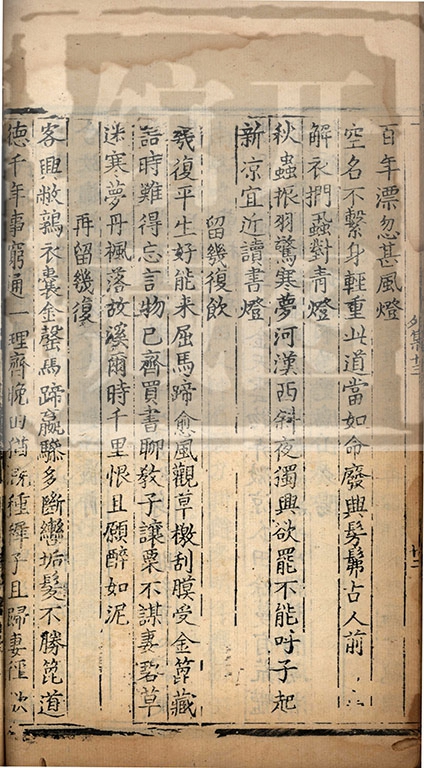 百年漂忽甚風燈
空名不繫身輕重此道當如命廢興髣髴占人前
解衣捫蝨對青燈
秋蟲振羽驚寒夢河漢西斜夜獨興欲罷不能呼子起
新凉宜近讀書燈
留幾復飲
幾復平生好能来屈馬蹄愈風觀草檄刮膜受金箆藏
語時難得忘言物已齊買書聊敎子讓粟不謀妻碧草
迷寒夢丹楓落故溪爾時千里恨且願醉如泥
再留幾復
客興敝鶉衣囊金罄馬蹄羸驂多斷轡垢髮不勝箆道
德千年事窮通一理齊晚田猶旣種稺子且歸妻徑欲